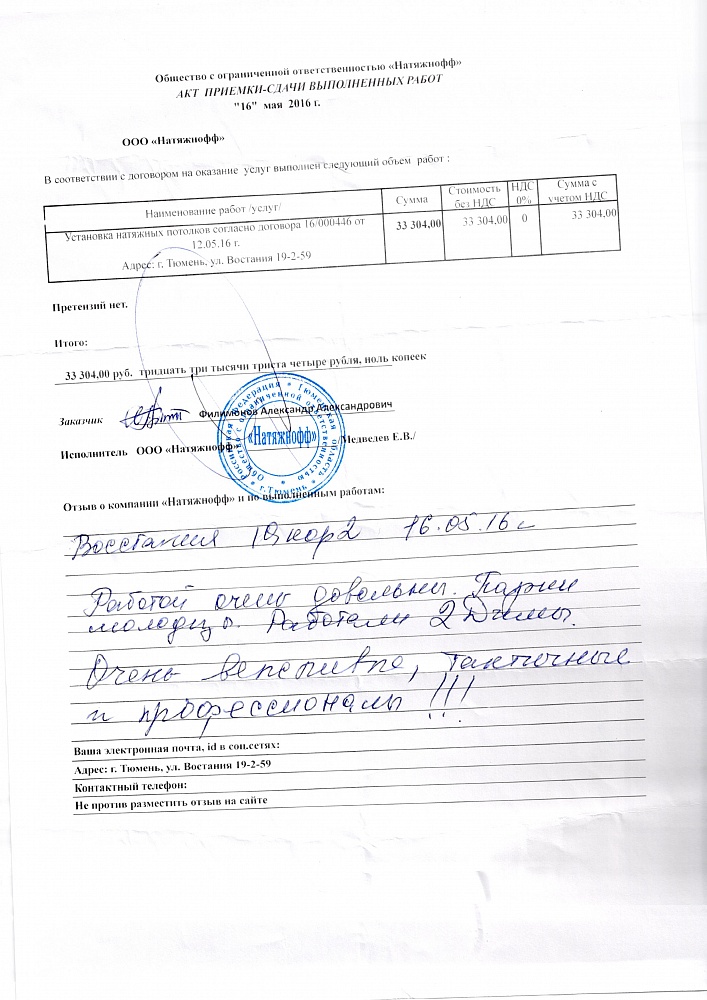 Общество с ограниченной ответственностью «Натяжнофф»
АКТ ПРИЕМКИ-СДАЧИ ВЫПОЛНЕННЫХ РАБОТ
"16" мая 2016 г.
ООО «Натяжнофф»
В соответствии с договором на оказание услуг выполнен следующий объем работ :
Наименование работ /услуг/ Сумма Стоимость без НДС НДС 0% Сумма с учетом НДС
Установка натяжных потолков согласно договора 16/000446 от 33 304,00 33 304,00 0 33 304,00
12.05.16 г.
Адрес: г. Тюмень, ул. Востания 19-2-59
Претензий нет.
Итого:
33 304,00 руб. тридцать три тысячи триста четыре рубля, ноль копеек
Заказчик Филимонов Александр Александрович
Исполнитель ООО «Натяжнофф» /Медведев Е.В./
Российская Федерация * Тюменская область * г.Тюмень *
Общество с ограниченной ответственностью
«Натяжнофф»
Отзыв о компании «Натяжнофф» и по выполненным работам:
Восстания 19 кор 2 16.05.16 г
Работой очень довольны. Парни
молодцы. Работали 2 Димы.
Очень тактичные
и профессионалы !!!
Ваша электронная почта, id в соц.сетях:
Адрес: г. Тюмень, ул. Востания 19-2-59
Контактный телефон:
Не против разместить отзыв на сайте